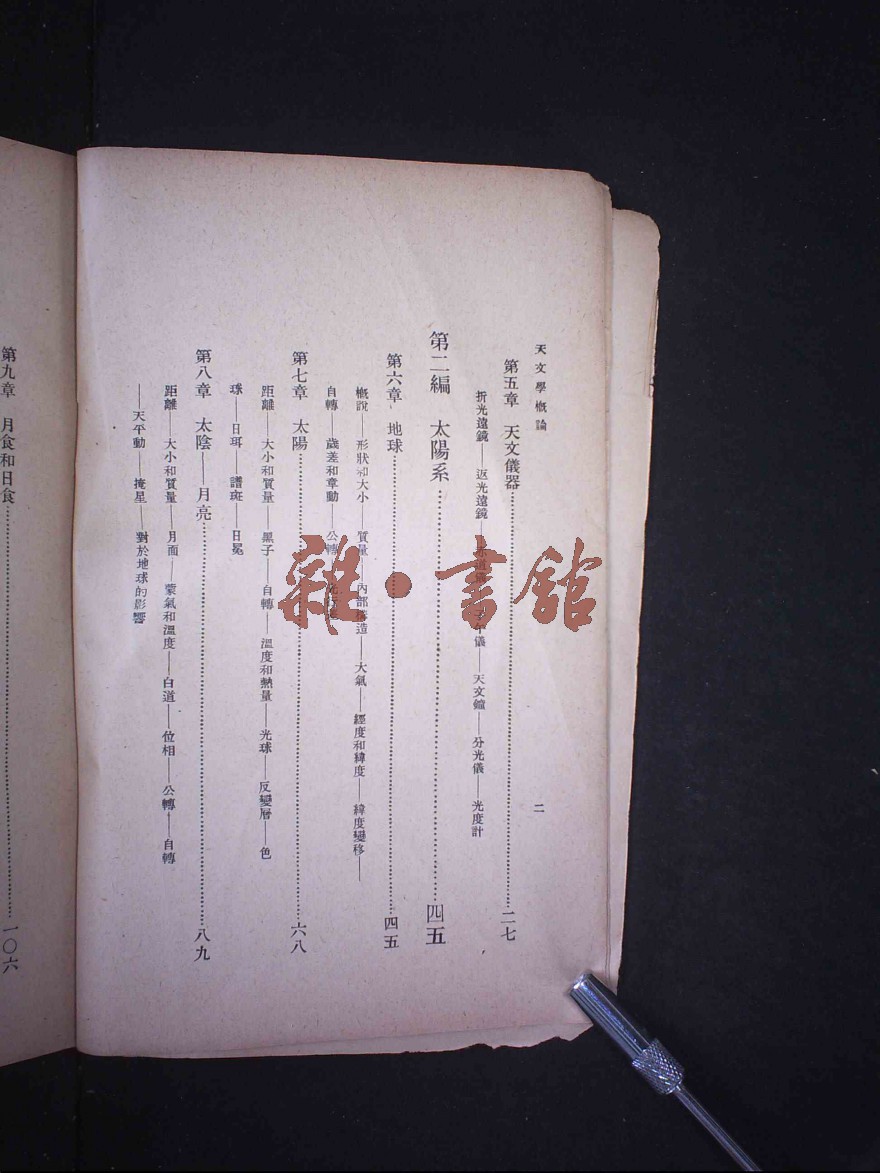 天文學概論
二
第五章 天文儀器……二七
折光遠鏡——返光遠鏡——赤道儀——子午儀——天文鐘——分光儀——光度計
第二編 太陽系……四五
第六章 地球……四五
概說——形狀和大小——質量——內部構造——大氣——經度和緯度——緯度變移——
自轉——歲差和章動——公轉
第七章 太陽……六八
距離——大小和質量——黑子——自轉——溫度和熱量——光球——反變層——色
球——日珥——譜斑——日冕
第八章 太陰——月亮……八九
距離——大小和質量——月面——蒙氣和溫度——白道——位相——公轉——自轉
——天平動——掩星——對於地球的影響
第九章 月食和日食……一〇六
雜·書館